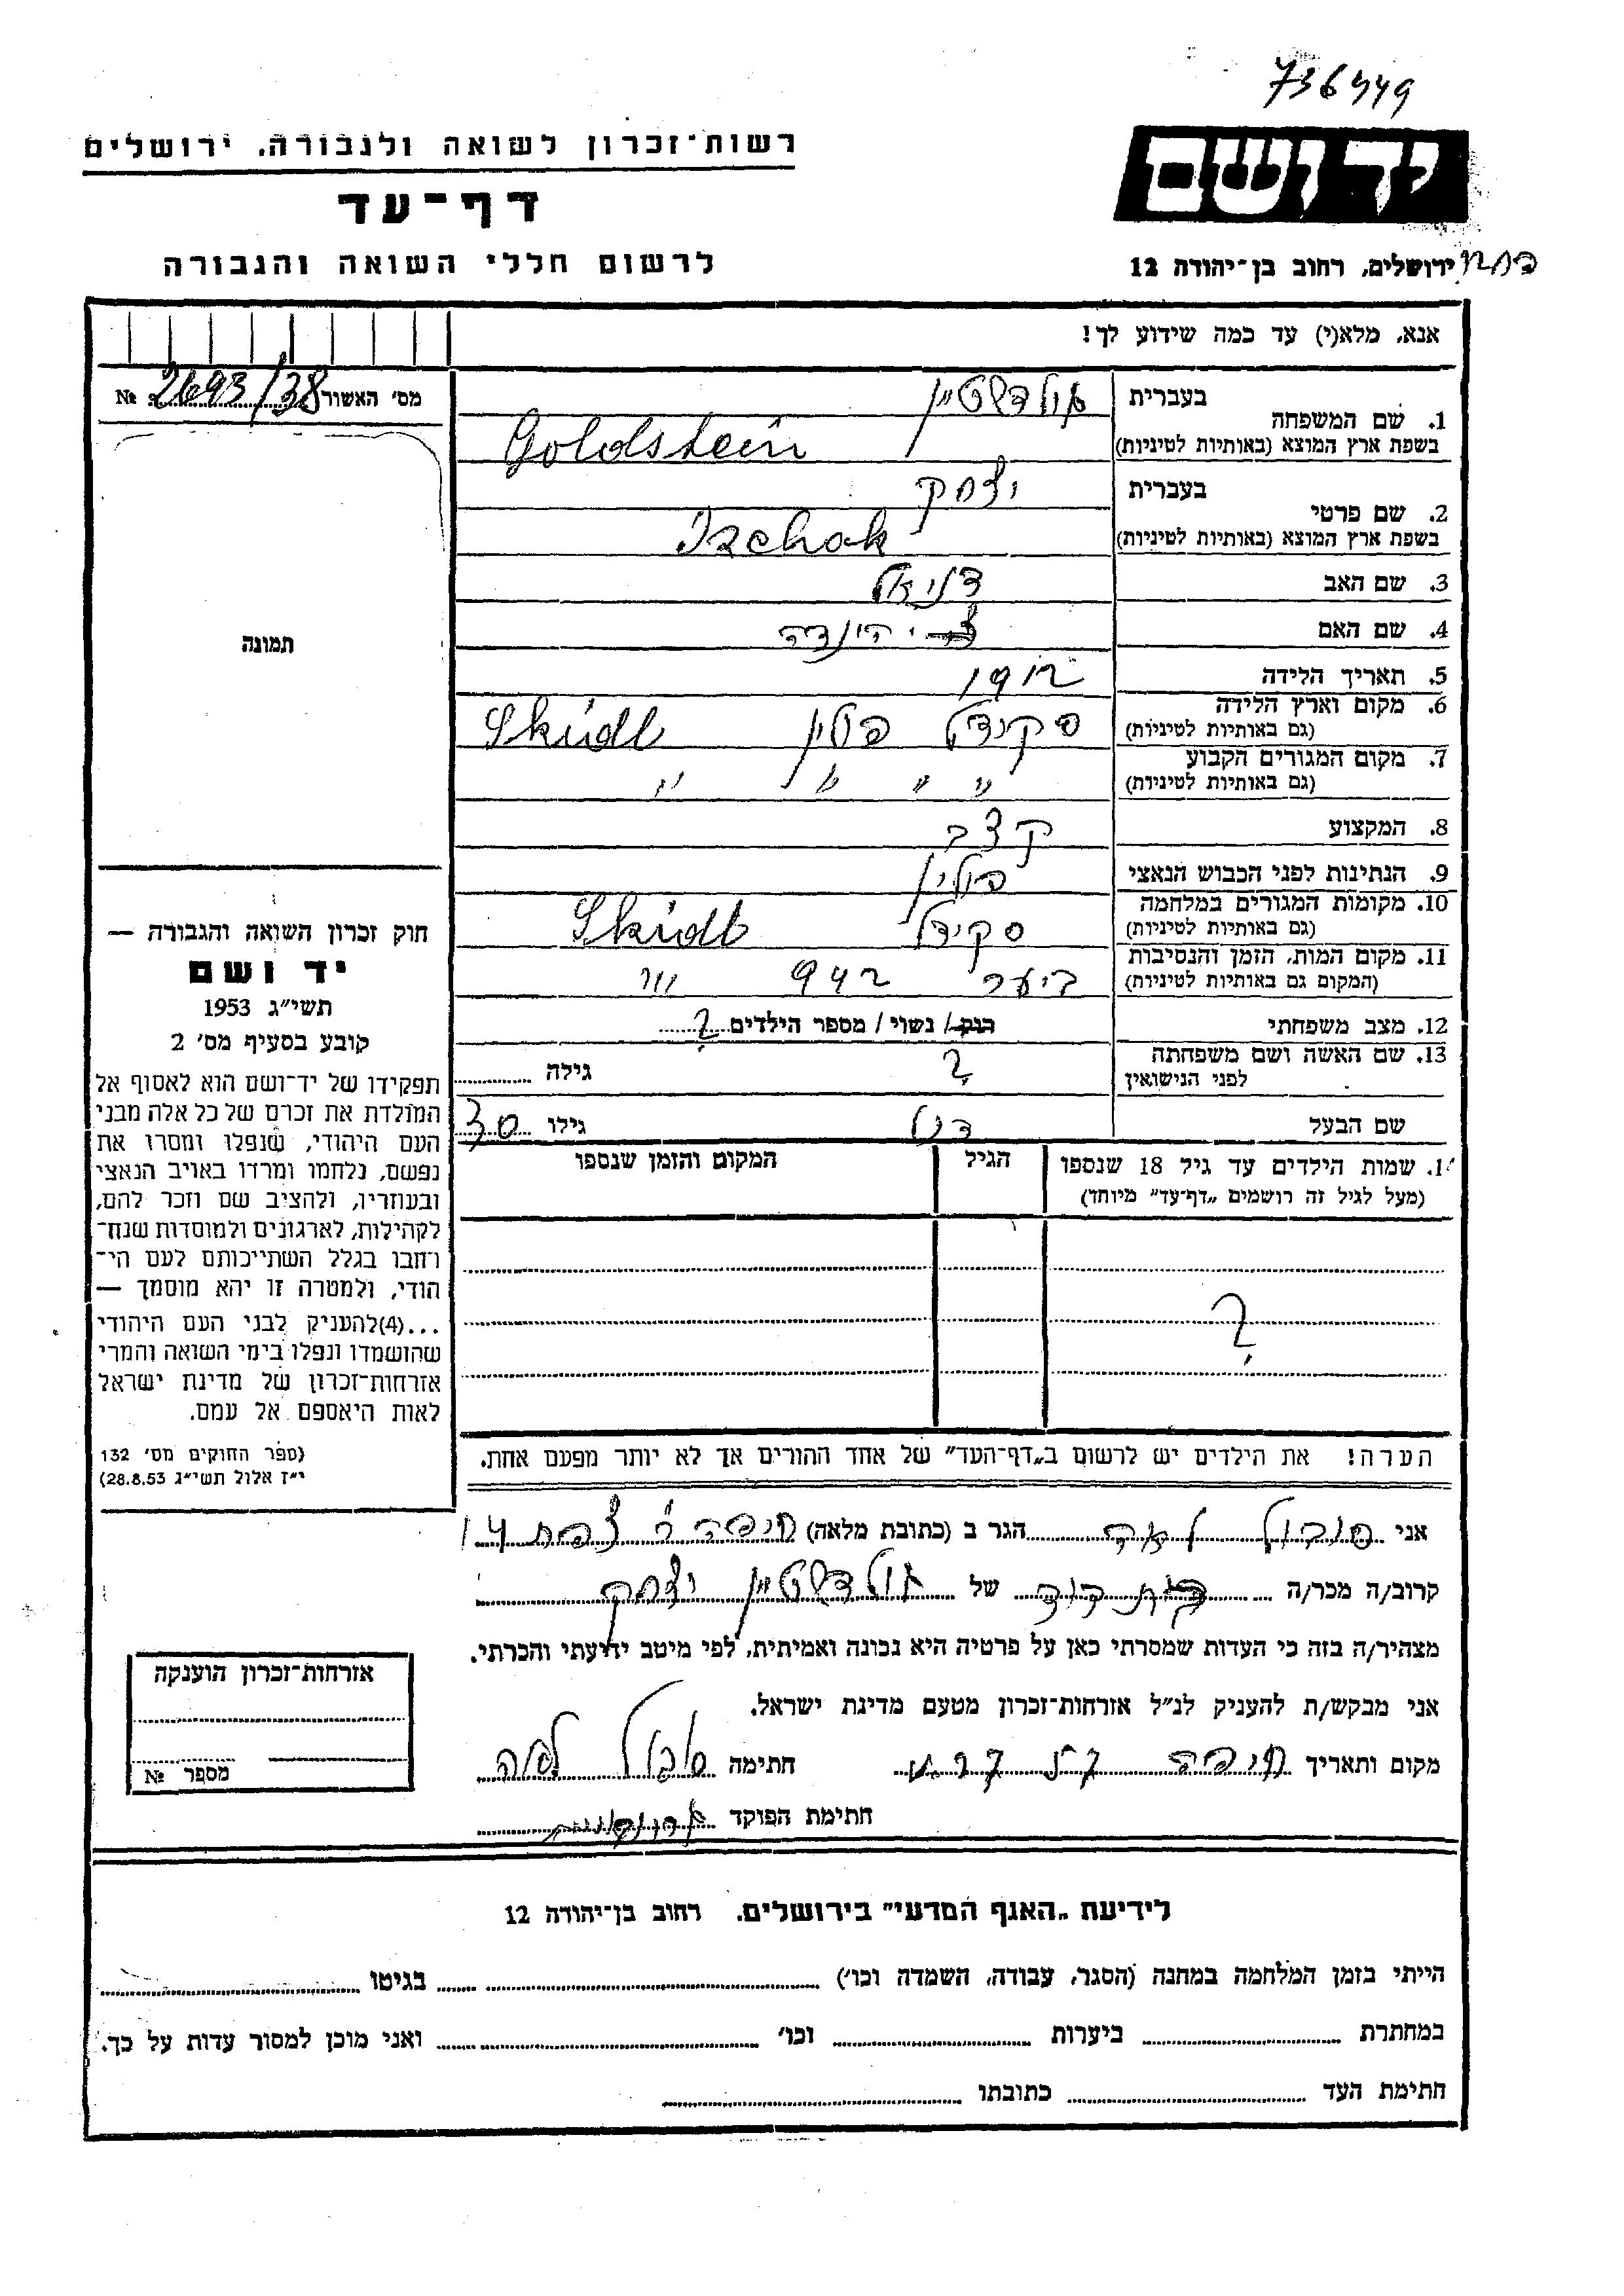 736449
רשות־זכרון לשואה ולגבורה, ירושלים
דף־עד
לרשום חללי השואה והגבורה
יד ושם
ירושלים, רחוב בן־יהודה 12
אנא, מלא(י) עד כמה שידוע לך!
מס׳ האשור 2693/38 №
1. שם המשפחה
בעברית גולדשטיין
בשפת ארץ המוצא (באותיות לטיניות) Goldstein
2. שם פרטי
בעברית יצחק
בשפת ארץ המוצא (באותיות לטיניות) Izchak
3. שם האב דניאל
4. שם האם הינדה
5. תאריך הלידה 1912
6. מקום וארץ הלידה
(גם באותיות לטיניות) סקידל פולין Skidl
7. מקום המגורים הקבוע
(גם באותיות לטיניות) " " " "
8. המקצוע קצב
9. הנתינות לפני הכבוש הנאצי פולין
10. מקומות המגורים במלחמה
(גם באותיות לטיניות) סקידל Skidl
11. מקום המות, הזמן והנסיבות
(המקום גם באותיות לטיניות) ביער 942
12. מצב משפחתי רווק / נשוי / מספר הילדים ?
13. שם האשה ושם משפחתה
לפני הנישואין ? גילה
שם הבעל גילו 30
14. שמות הילדים עד גיל 18 שנספו
(מעל לגיל זה רושמים „דף־עד״ מיוחד)
הגיל
המקום והזמן שנספו
?
הערה! את הילדים יש לרשום ב„דף־העד״ של אחד ההורים אך לא יותר מפעם אחת.
תמונה
חוק זכרון השואה והגבורה —
יד ושם
תשי״ג 1953
קובע בסעיף מס׳ 2
תפקידו של יד־ושם הוא לאסוף אל
המולדת את זכרם של כל אלה מבני
העם היהודי, שנפלו ומסרו את
נפשם, נלחמו ומרדו באויב הנאצי
ובעוזריו, ולהציב שם וזכר להם,
לקהילות, לארגונים ולמוסדות שנח־
רחבו בגלל השתייכותם לעם הי־
הודי, ולמטרה זו יהא מוסמך —
...(4)להעניק לבני העם היהודי
שהושמדו ונפלו בימי השואה והמרי
אזרחות־זכרון של מדינת ישראל
לאות היאספם אל עמם.
(ספר החוקים מס׳ 132
י״ז אלול תשי״ג 28.8.53)
אני סובול לאה הגר ב (כתובת מלאה) חיפה צפת 14
קרוב/ה מכר/ה בת דוד של גולדשטיין יצחק
מצהיר/ה בזה כי העדות שמסרתי כאן על פרטיה היא נכונה ואמיתית, לפי מיטב ידיעתי והכרתי.
אני מבקש/ת להעניק לנ״ל אזרחות־זכרון מטעם מדינת ישראל.
מקום ותאריך חיפה חתימה סובול לאה
חתימת הפוקד
אזרחות־זכרון הוענקה
מספר №
לידיעת „האגף המדעי״ בירושלים, רחוב בן־יהודה 12
הייתי בזמן המלחמה במחנה (הסגר, עבודה, השמדה וכו׳) בגיטו
במחתרת ביערות וכו׳ ואני מוכן למסור עדות על כך.
חתימת העד כתובתו